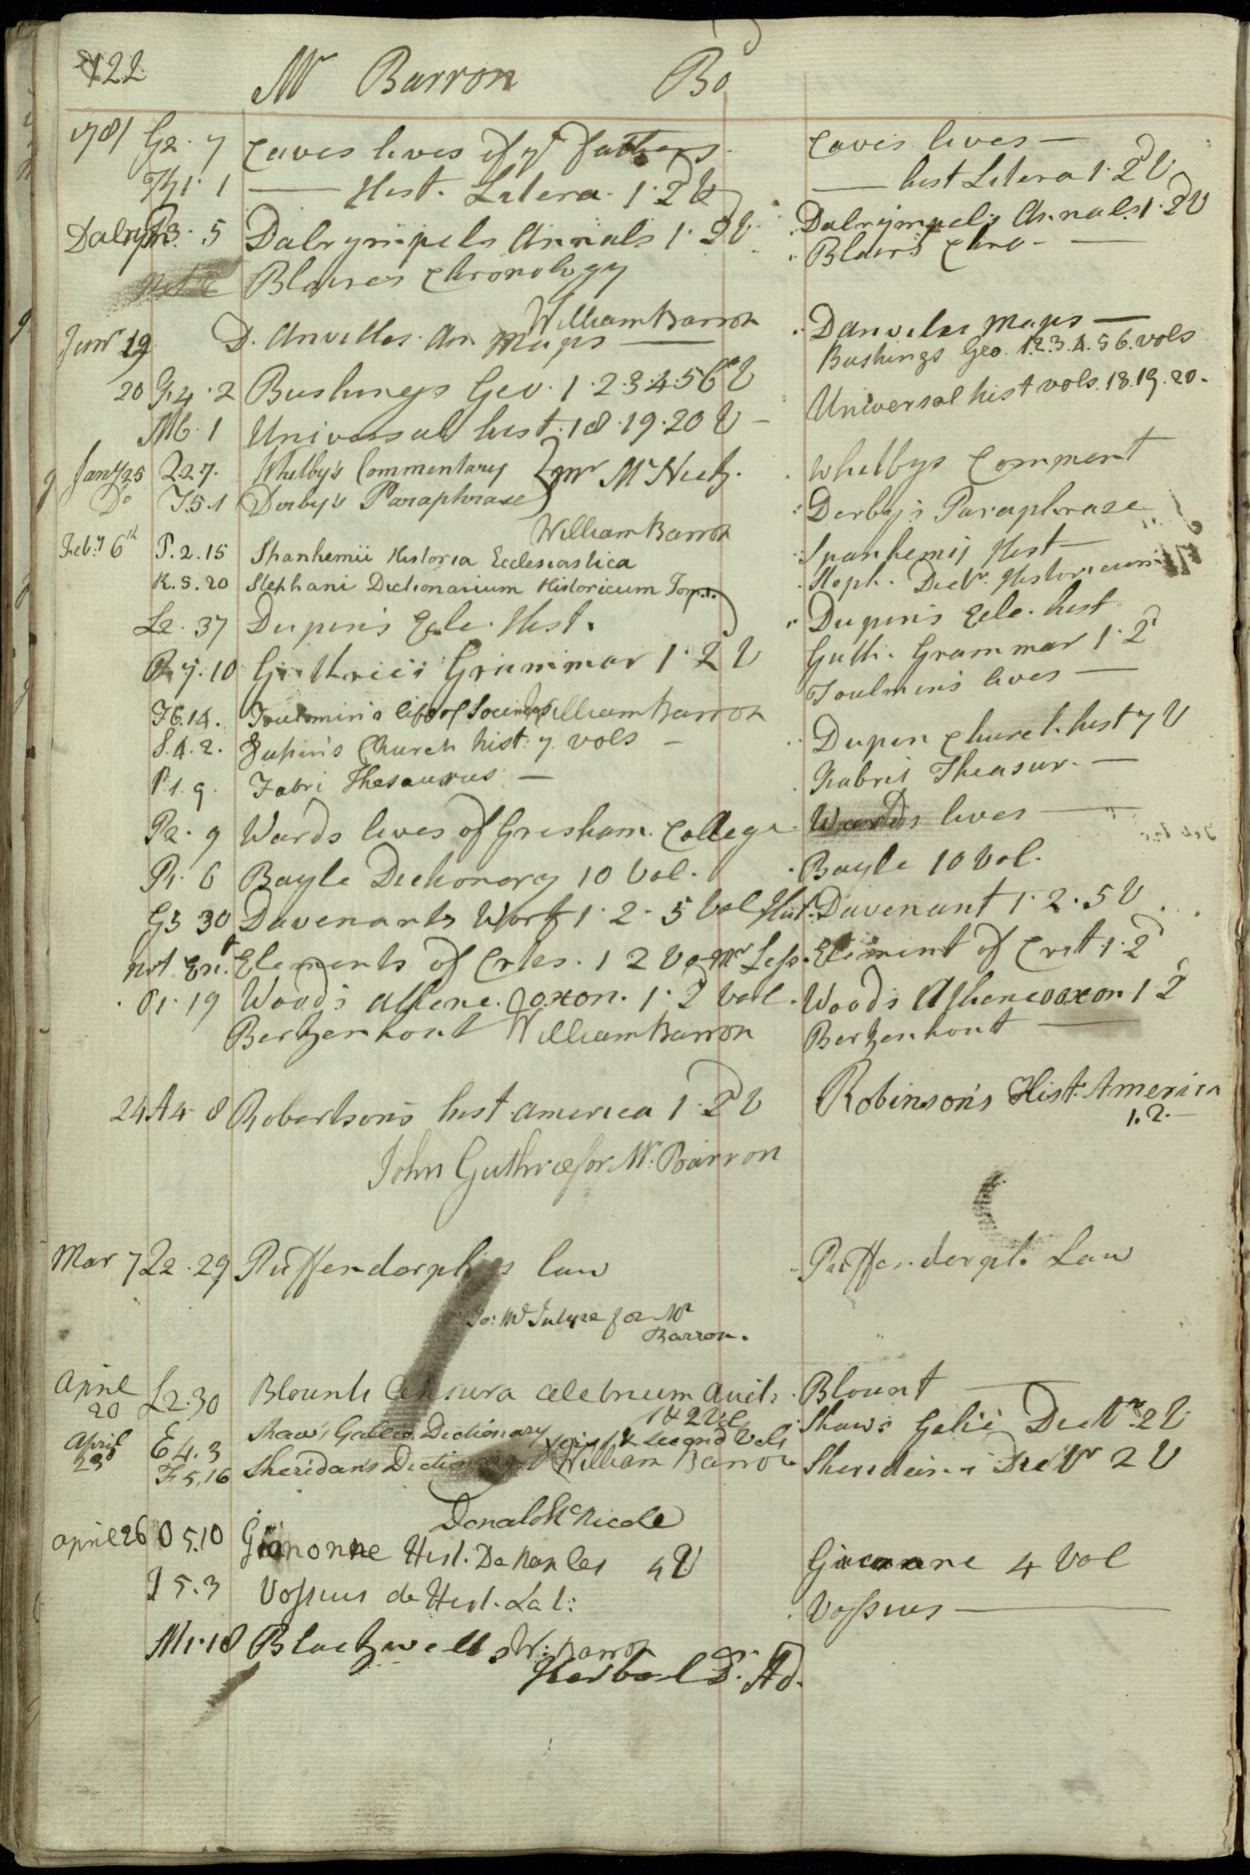 122 Mr Barron Bo
1781 G2. 7 Caves lives of ye fathers. Caves lives —
Th1. 1 — Hist. Litera. 1. 2d V — hist Litera 1. 2d V
Dalrym 5 Dalrympels Annals 1. 2d V Dalrympels Annals 1. 2d V
Blaires Chronology Blairs Chro —
William Barron
Janr 19 D. Anvilles An Maps — Danviles Maps —
20 G4. 2 Bushings Geo. 1. 2. 3. 4. 5 6th V Bushings Geo. 1. 2. 3. 4. 5 6. vols
M6. 1 Universal hist. 18. 19. 20 V — Universal hist vols. 18. 19. 20.
Jany 25 Q2.7. Whitby's Commentary Whitbys Comment
Do T.5.1 Derby's Paraphrase Derby's Paraphrase
William Barron
Feby 6th P.2.15 Spanhemii Historia Ecclesiastica Spanhemij Hist —
K.5.20 Stephani Dictionarium Historicum Steph. Dictr. Historicum
L2. 37 Dupin's Ecle. Hist. Dupin's Ecle. hist
R7. 10 Guthrie's Grammar 1. 2d V Guth. Grammar 1. 2d
I6.14. Toulmin's life of Socinus William Barron Toulmin's lives —
S.4.2. Dupin's Church hist: 7. vols — Dupin Church hist 7 V
P1. 9. Fabri Thesaurus — Fabris Theasur. —
P2. 9 Wards lives of Gresham. College Wards lives —
P1. 6 Bayle Dictionary 10 Vol. Bayle 10 Vol.
G3 30 Davenants Works 1. 2. 5 Vol Davenant 1. 2. 5 V
not Ent. Elements of Crits. 1 2 Vo Element of Crit. 1. 2d
P1. 19 Wood's Athene. Oxon. 1. 2d Vol. Woods Athene oxon 1 2d
Berkenhout William Barron Berkenhout —
24 A4. 8 Robertson's hist america 1. 2d V Robinson's Hist: America
1. 2. —
John Guthrie for Mr. Barron
Mar 7 Q2. 29 Puffendorph's law Puffendorph. Law
Jo: McIntyre for Mr
Barron.
Aprile
20 L2. 30 Blounti Censura Celebrium Auct. Blount —
1 & 2 Vol.
April
23 E4. 3 Shaw's Galic Dictionary first & second Vols Shaw's Galic Dictr 2 V
F5.16 Sheridans Dictionary William Barron Sheridan's Dictr 2 V
Donald McNicole
aprile 26 O5.10 Gianonne Hist. De Naples 4 V Gianone 4 Vol
I5.3 Vossius de Hist. Lat: Vossius —
M1. 18 Blackwells W: Barron
Herbal D. Ad.